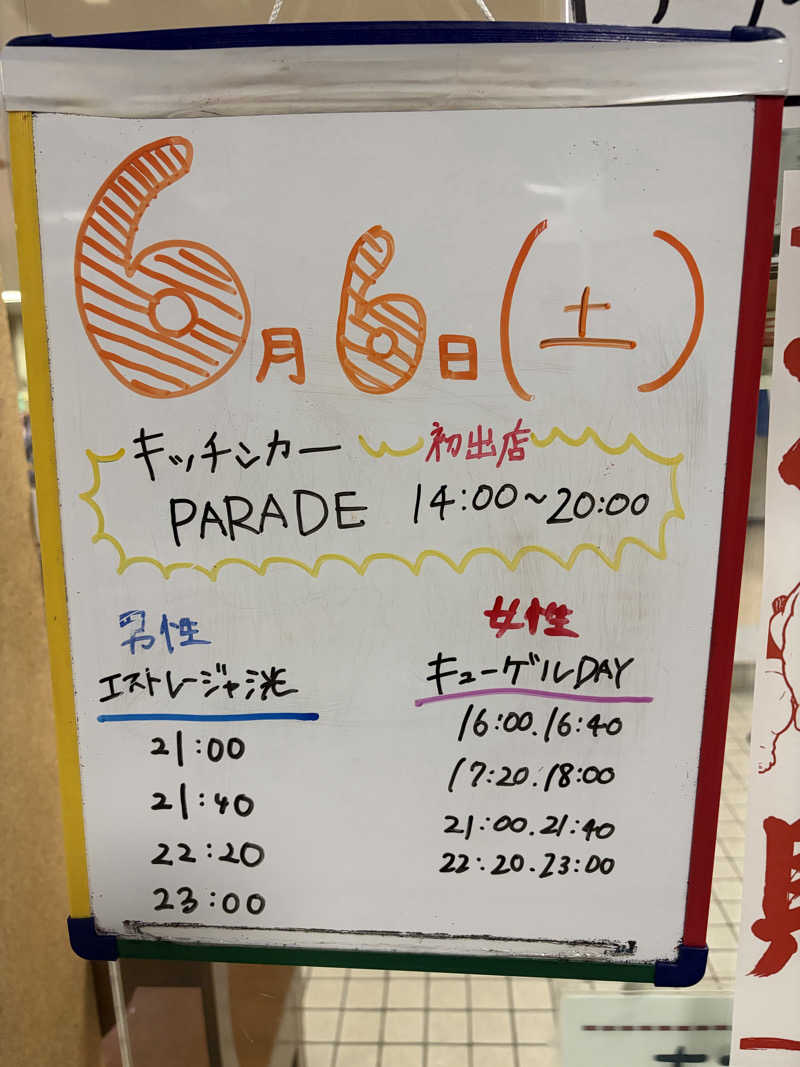 6月6日(土)
キッチンカー 初出店
PARADE 14:00~20:00
男性
エストレージャ洸
21:00
21:40
22:20
23:00
女性
キューゲルDAY
16:00.16:40
17:20.18:00
21:00.21:40
22:20.23:00